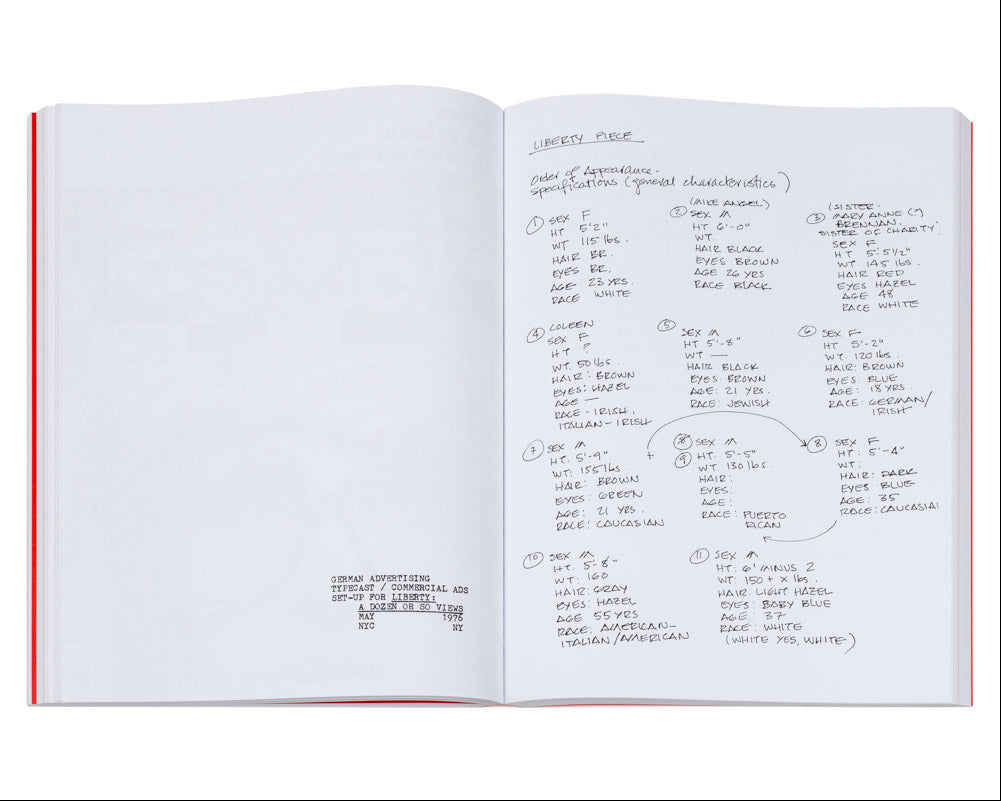 GERMAN ADVERTISING
TYPECAST / COMMERCIAL ADS
SET-UP FOR LIBERTY:
A DOZEN OR SO VIEWS
MAY 1976
NYC NY
LIBERTY PIECE
Order of Appearance -
specifications (general characteristics)
1 SEX F
HT 5'2"
WT 115 lbs.
HAIR BR.
EYES BR.
AGE 23 YRS.
RACE WHITE
(MIKE ANGEL)
2 SEX M
HT 6'-0"
WT.
HAIR BLACK
EYES BROWN
AGE 26 YRS
RACE BLACK
(SISTER -
3 MARY ANNE (?)
BRENNAN,
SISTER OF CHARITY)
SEX F
HT 5'-5 1/2"
WT 145 lbs.
HAIR RED
EYES HAZEL
AGE 48
RACE WHITE
4 COLEEN
SEX F
HT ?
WT. 50 lbs.
HAIR: BROWN
EYES: HAZEL
AGE —
RACE - IRISH,
ITALIAN - IRISH
5 SEX M
HT 5'-8"
WT —
HAIR: BLACK
EYES: BROWN
AGE: 21 YRS.
RACE: JEWISH
6 SEX F
HT 5'-2"
WT. 120 lbs.
HAIR: BROWN
EYES: BLUE
AGE: 18 YRS.
RACE: GERMAN/
IRISH
7 SEX M
HT. 5'-9"
WT: 155 lbs.
HAIR: BROWN
EYES: GREEN
AGE: 21 YRS.
RACE: CAUCASIAN
8 SEX M
9 HT. 5'-5"
WT. 130 lbs.
HAIR:
EYES:
AGE:
RACE: PUERTO
RICAN
8 SEX F
HT: 5'-4"
WT:
HAIR: DARK
EYES: BLUE
AGE: 35
RACE: CAUCASIAN
10 SEX M
HT. 5-8"
WT: 160
HAIR: GRAY
EYES: HAZEL
AGE 55 YRS
RACE: AMERICAN-
ITALIAN/AMERICAN
11 SEX M
HT: 6' MINUS 2
WT: 150 + X lbs.
HAIR: LIGHT HAZEL
EYES: BABY BLUE
AGE: 37
RACE: WHITE
(WHITE YES, WHITE.)